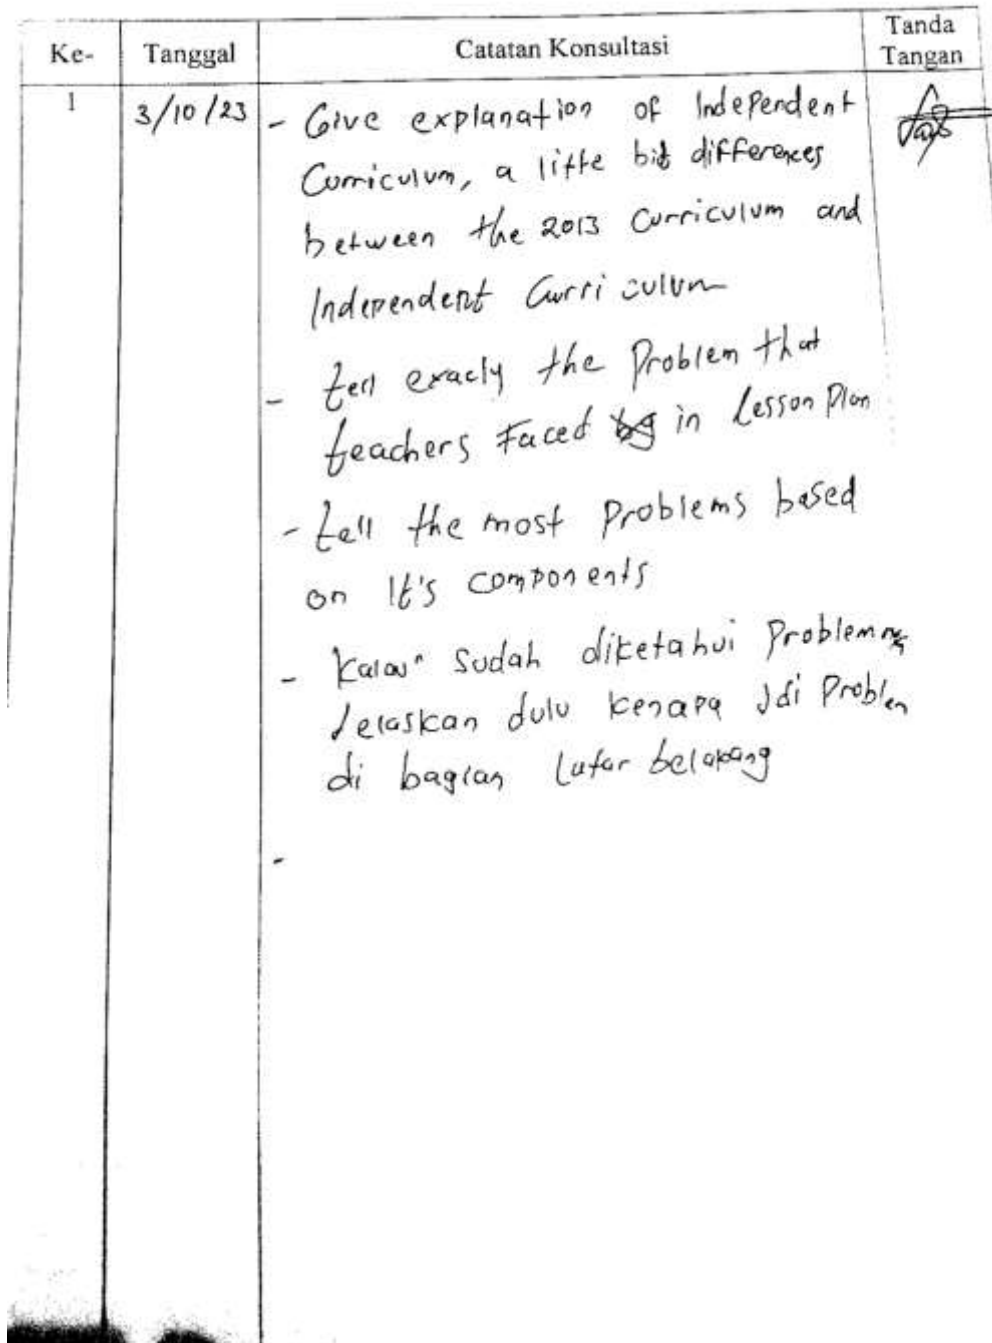 Ke- Tanggal Catatan Konsultasi Tanda Tangan
1 3/10/23 - Give explanation of Independent
Curriculum, a litte bit differences
between the 2013 Curriculum and
Independent Curriculum
- tell exacly the Problem that
teachers Faced in Lesson Plan
- tell the most Problems based
on It's components
- Kalau sudah diketahui Problemnya
Jelaskan dulu kenapa Jdi Problem
di bagian latar belakang
-